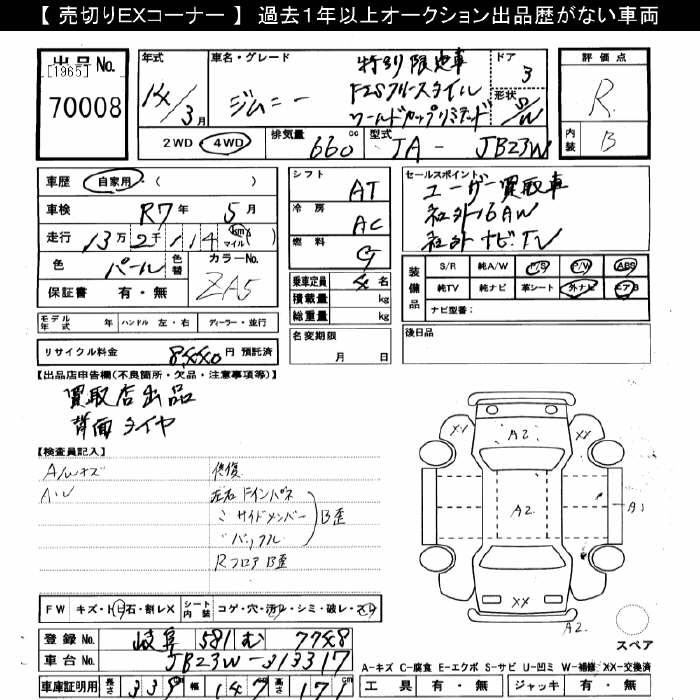 【 売切りEXコーナー 】 過去１年以上オークション出品歴がない車両
出品No.
[1965]
70008
年式
14/3月
車名・グレード
ジムニー
特別限定車
FISフリースタイル
ワールドカップリミテッド
ドア
3
形状
S/W
2WD・4WD
排気量
660cc
型式
TA - JB23W
評価点
R
内装
B
車歴
自家用・( )
車検
R7年 5月
走行
13万2千114
km
マイル( )
色
パール
色替
カラーNo.
ZA5
保証書 有・無
モデル年式 年
ハンドル 左・右
ディーラー・並行
リサイクル料金
円 預託済
シフト
AT
冷房
AC
燃料
G
乗車定員 4名
積載量 kg
総重量 kg
名変期限
月 日
セールスポイント
ユーザー買取車
社外16AW
社外ナビTV
装備品
S/R 純A/W P/S P/W ABS
純TV 純ナビ 革シート 外ナビ エアB
ナビ型番：
後日品
【出品店申告欄(不良箇所・欠品・注意事項等)】
買取店出品
背面タイヤ
【検査員記入】
A/Wキズ
修復
左右Fインパネ
〃サイドメンバー
〃バックル
B歪
RフロアB歪
XX
XX
A2
A2
A1
XX
A2
スペア
FW キズ・トビ石・割レX
シート内装
コゲ・穴・汚レ・シミ・破レ・スレ
登録No.
岐阜 581 む 7748
車台No.
JB23W-313317
車庫証明用
長さ 339
幅 147
高さ 171
A-キズ C-腐食 E-エクボ S-サビ U-凹ミ W-補修 XX-交換済
工具 有・無
ジャッキ 有・無